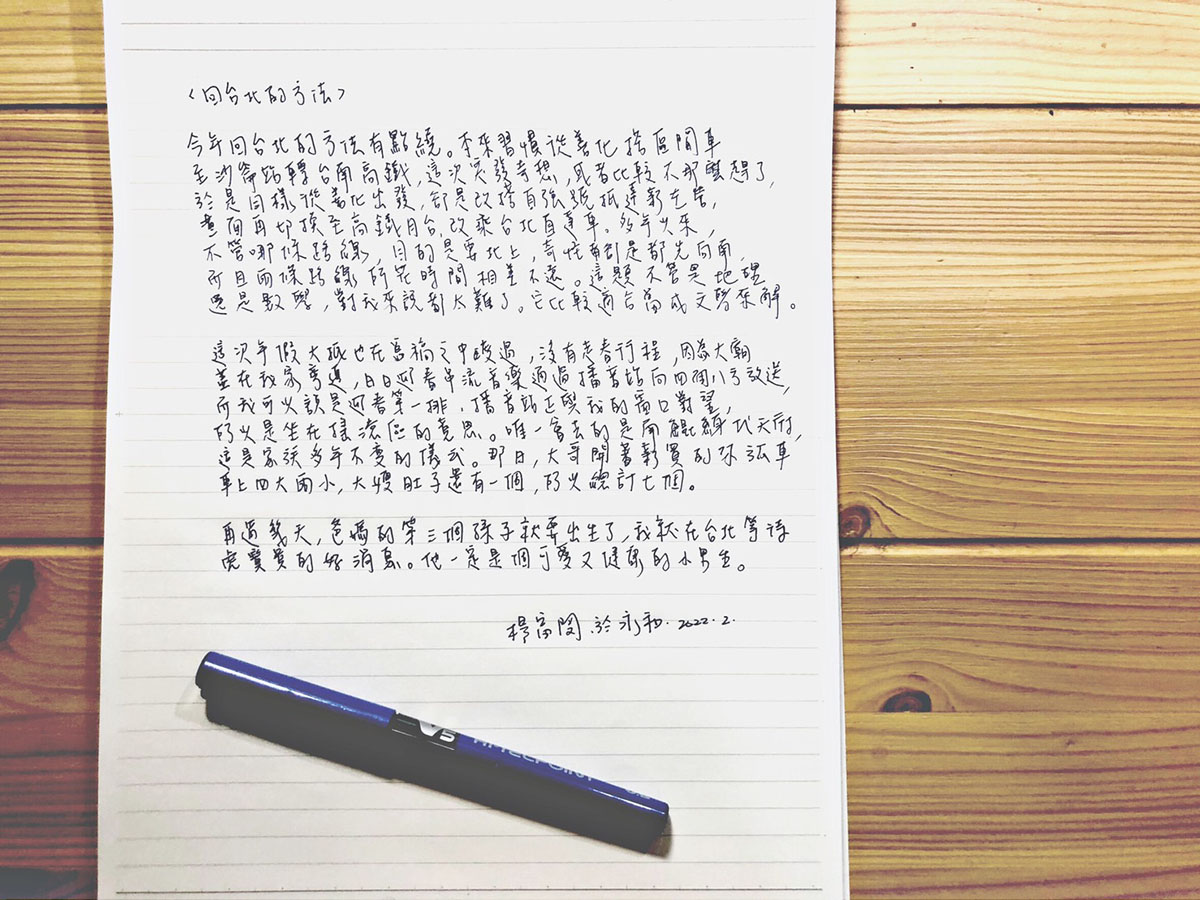 〈回台北的方法〉
今年回台北的方法有點繞。本來習慣從善化搭區間車
至沙崙站轉台南高鐵，這次突發奇想，或者比較不那麼趕了，
於是同樣從善化出發，卻是改搭自強號抵達新左營，
畫面再切換至高鐵月台，改乘台北直達車。多年以來，
不管哪條路線，目的是要北上，奇怪卻是都先向南，
而且兩條路線所花時間相差不遠。這題不管是地理
還是數學，對我來說都太難了。它比較適合當成文學來解。
這次年假大抵也在書稿之中度過，沒有走春行程，因為大廟
蓋在我家旁邊，日日迎春串流音樂通過播音站向四面八方放送，
所以我可以說是迎春第一排，播音站正與我的窗口對望，
所以是坐在搖滾區的意思。唯一會去的是南鯤鯓代天府，
這是家族多年不變的儀式。那日，大哥開著新買的休旅車
車上四大兩小，大嫂肚子還有一個，所以總計七個。
再過幾天，爸媽的第三個孫子就要出生了，我就在台北等待
虎寶寶的好消息。他一定是個可愛又健康的小男生。
楊富閔 於永和. 2022. 2.
V5